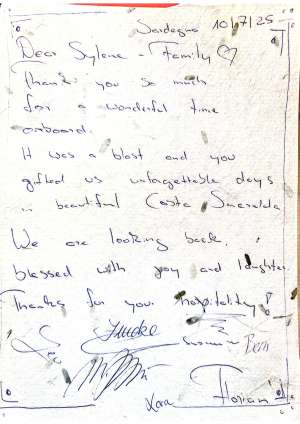 Sardegna 10/7/25
Dear Sylene - Family ♡
Thank you so much
for a wonderful time
onboard.
It was a blast and you
gifted us unforgettable days
in beautiful Costa Smeralda
We are looking back,
blessed with joy and laughter.
Thanks for your hospitality!
Susanne Ben
Lara Florian